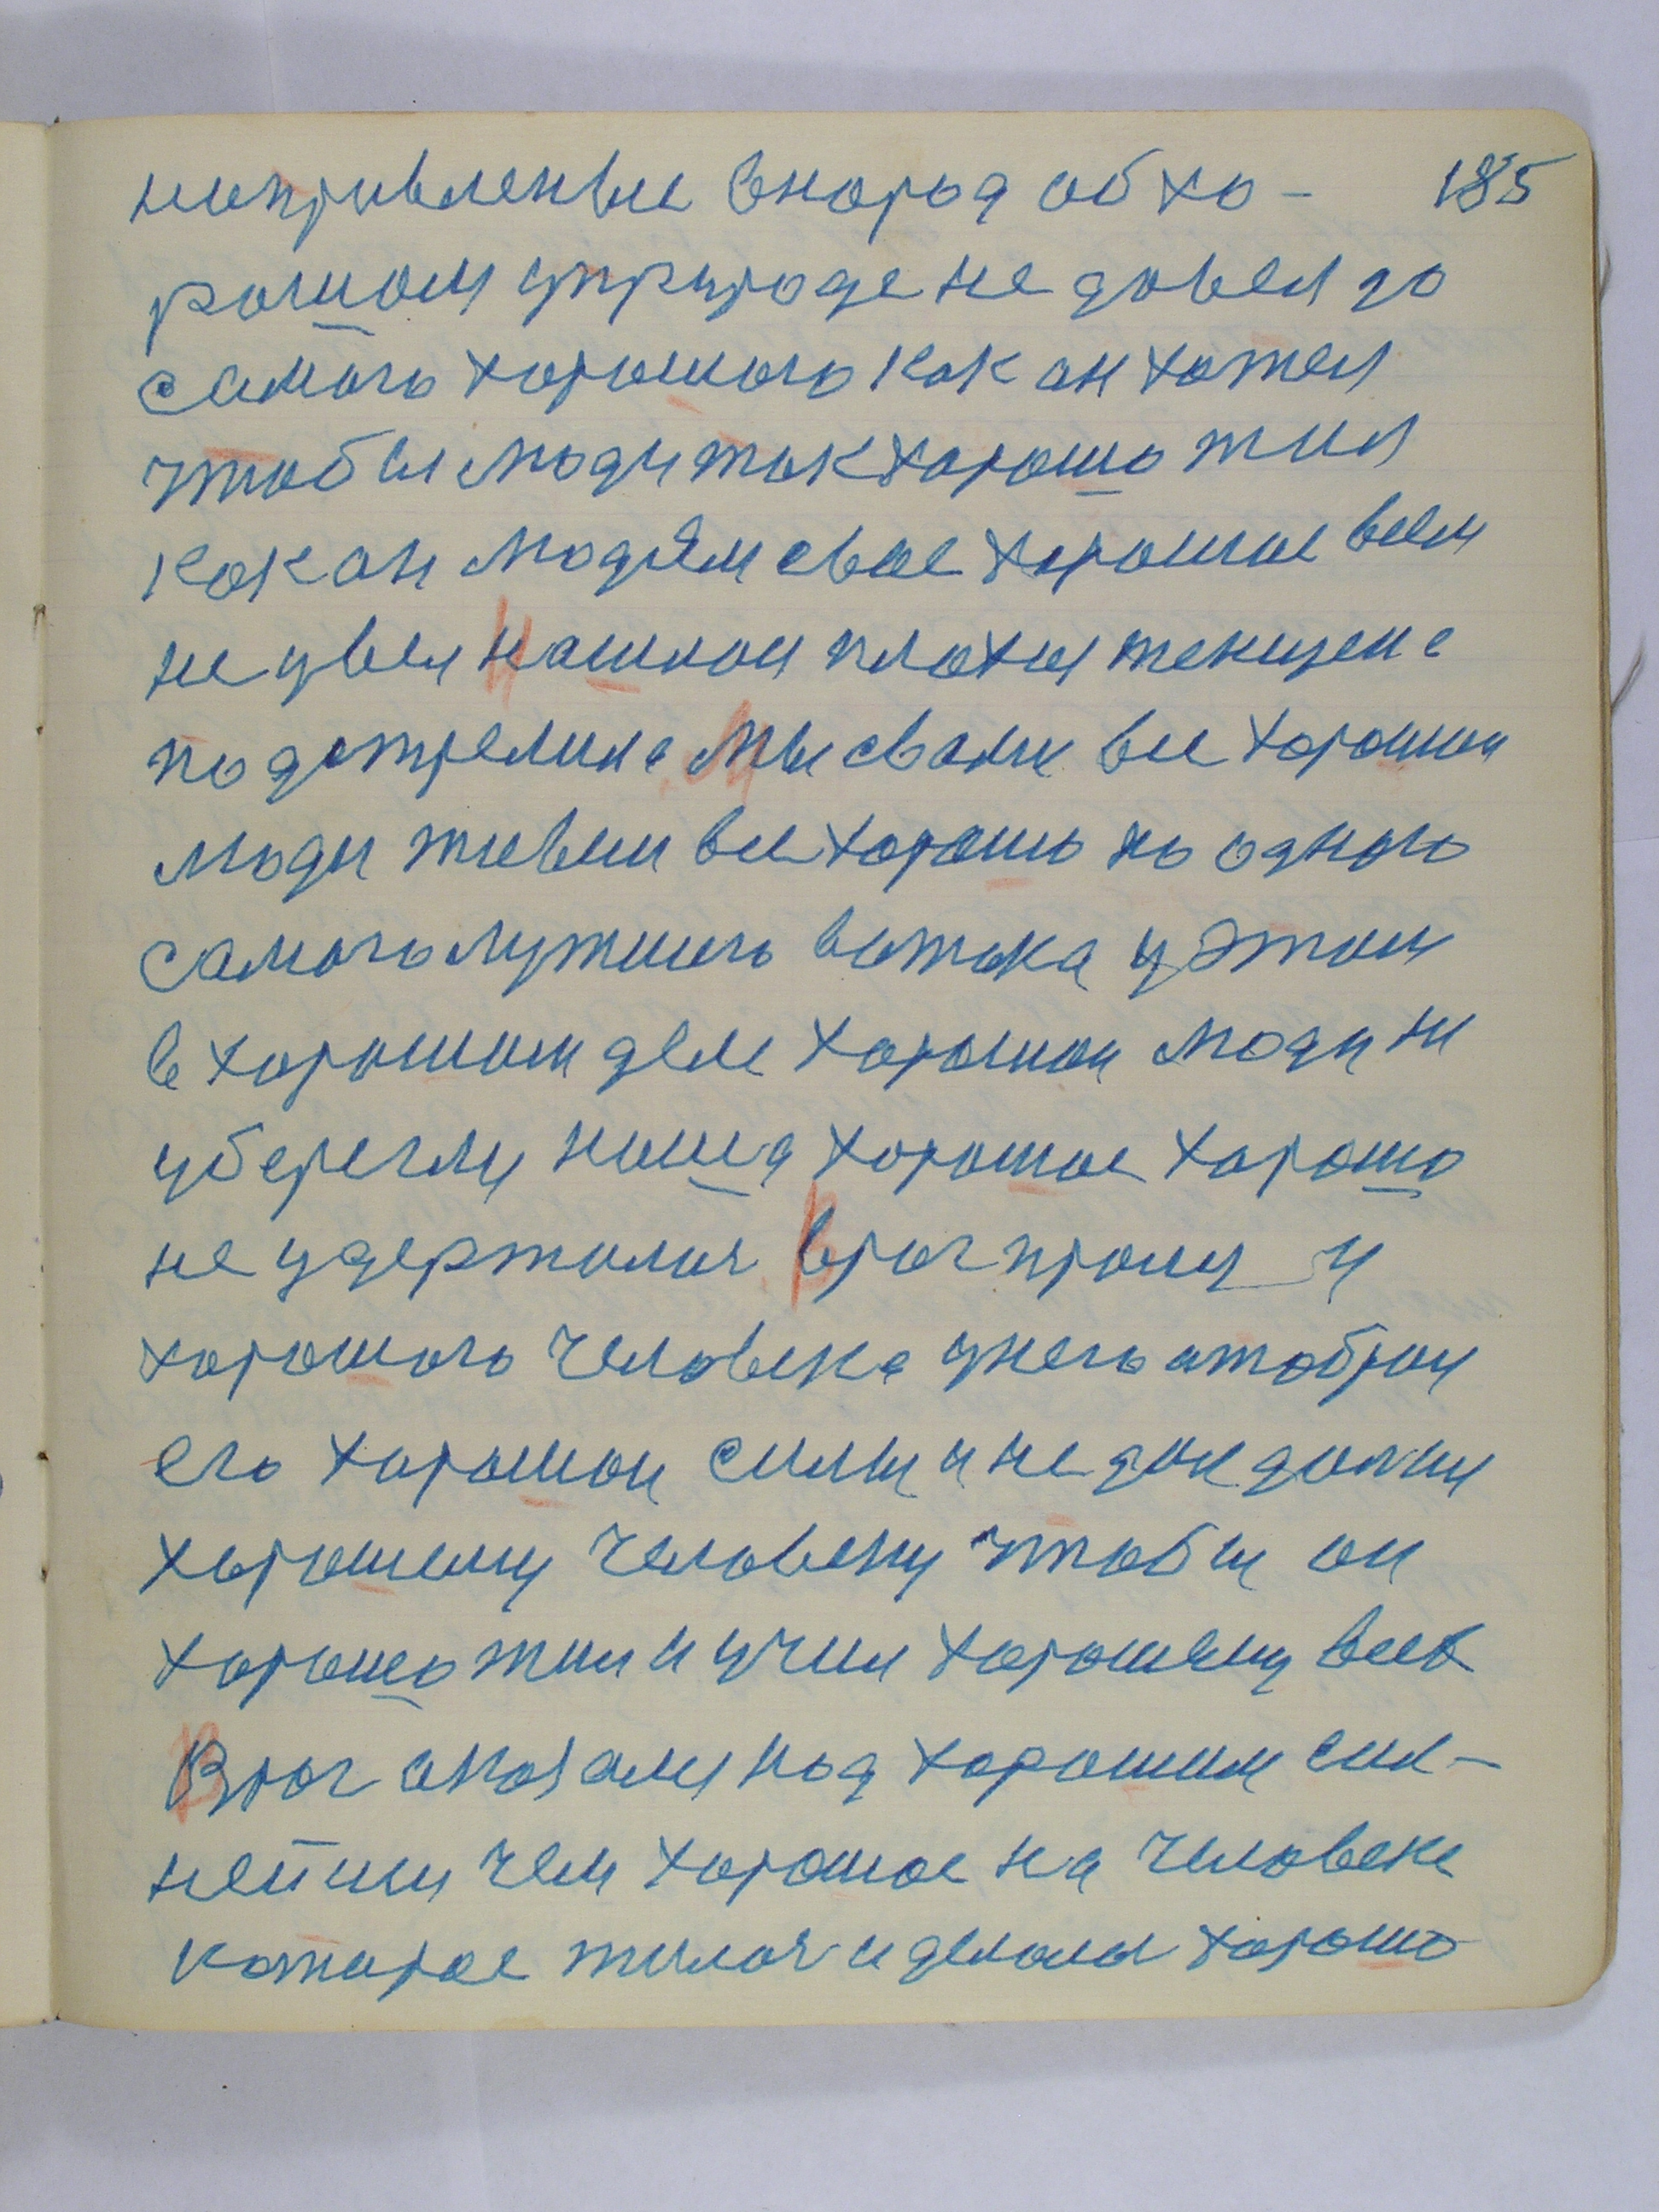 направленье внарод об хо- 185
рошом уприроде не довел до
самого хорошого как он хотел
чтобы люди так хорошо жил
как он людям свое хорошое всем
не увел нашлои плохия женщена
подстрелила Мы свами все хорошии
люди живем все хорошо но одного
самого лутшого вотока у этом
в хорошом деле хорошои люди ни
уберегли наша хорошое хорошо
не удержалоя враг прошл у
хорошого человека унего атобрал
его хорошои силы и не дал долгии
хорошему человеку чтобы он
хорошо жил и учил хорошему всех
Враг аказался над хорошим сил-
нейшии чем хорошое на человеке
которое жилоя и делалоя хорошо